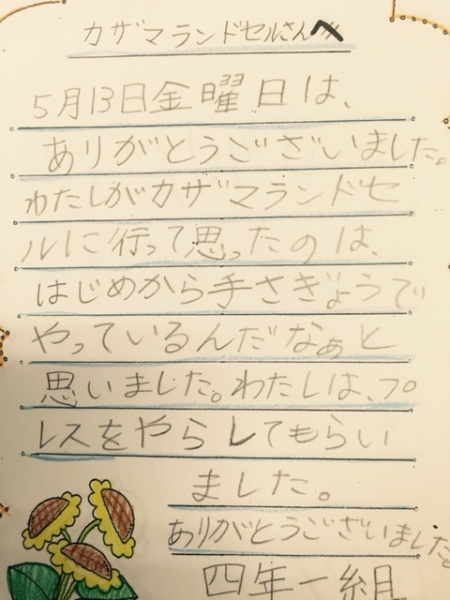 カザマランドセルさんへ
5月13日金曜日は、
ありがとうございました。
わたしがカザマランドセ
ルに行って思ったのは、
はじめから手さぎょうで
やっているんだなぁと
思いました。わたしは、プ
レスをやらしてもらい
ました。
ありがとうございました。
四年一組